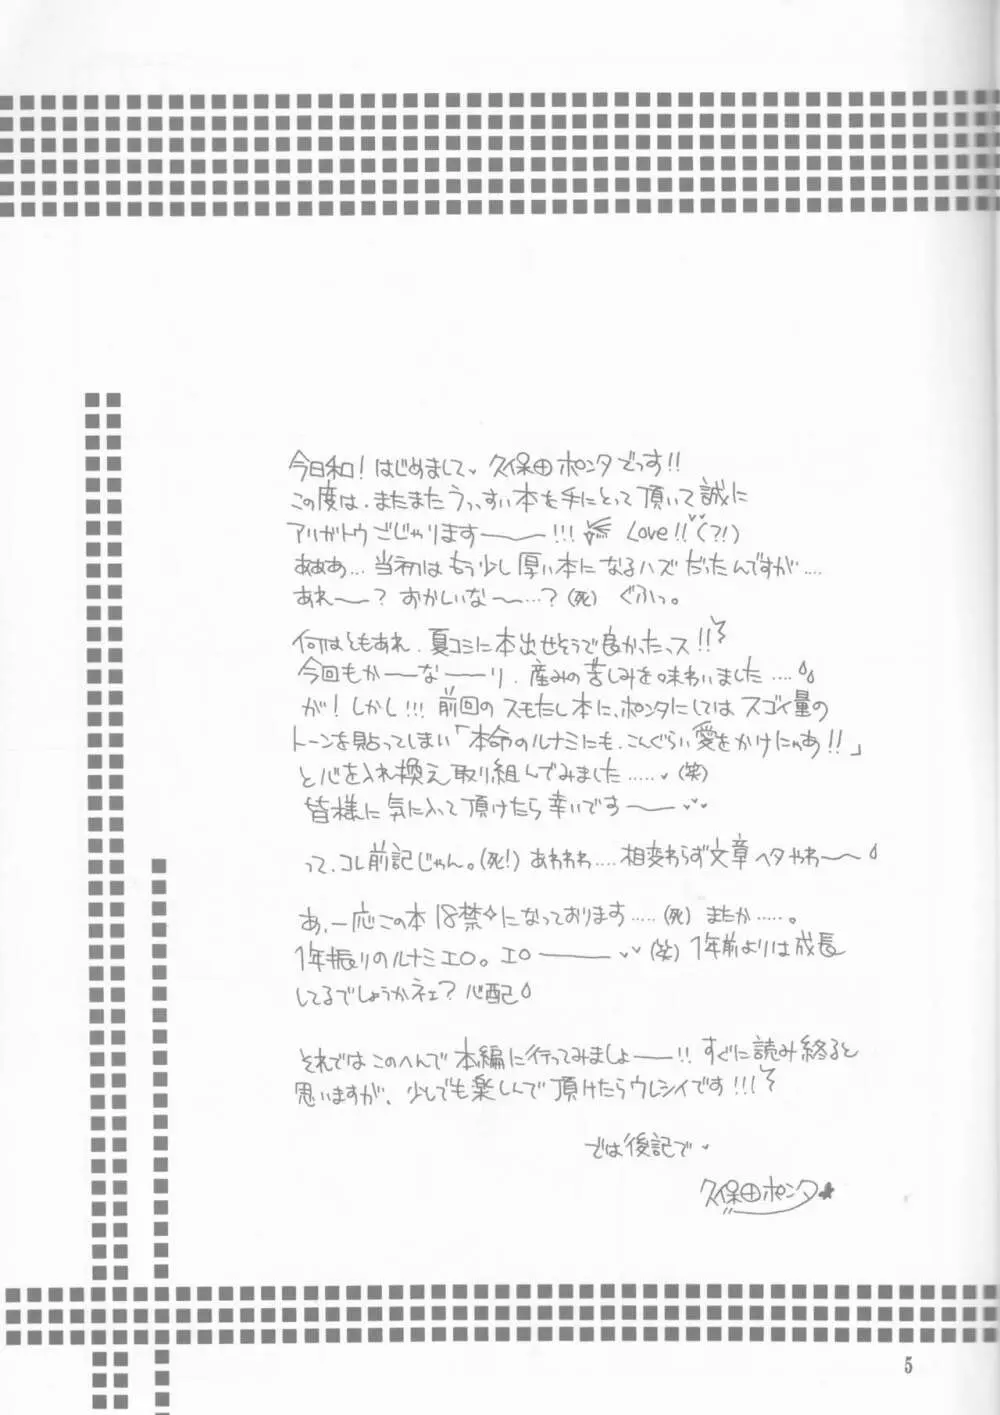 今日和!はじめまして♥久保田ポンタでっす!!
この度は、またまたうっすい本を手にとって頂いて誠に
アリガトウごじゃります――――!!! Love!!(?!)
ああぁ…当初はもう少し厚い本になるハズだったんですが….
あれ〜〜?おかしいな〜〜…?(死)ぐふっ。
何はともあれ、夏コミに本出せそうで良かったっス!!
今回もか――な――り、産みの苦しみを味わいました….
が!しかし!!!前回のスモたし本に、ポンタにしてはスゴイ量の
トーンを貼ってしまい「本命のルナミにも、こんぐらい愛をかけにゃあ!!」
と心を入れ換え取り組んでみました…..♥(笑)
皆様に気に入って頂けたら幸いです――♥♥
って、コレ前記じゃん。(死!)あわわわ….相変わらず文章ヘタやわ〜〜
あ、一応この本18禁になっております…..(死)またか…..。
1年振りのルナミエロ。エロ――――♥♥(笑)1年前よりは成長
してるでしょうかネェ?心配
それではこのへんで本編に行ってみましょ――!!すぐに読み終ると
思いますが、少しでも楽しんで頂けたらウレシイです!!!
では後記で♥
久保田ポンタ★
5